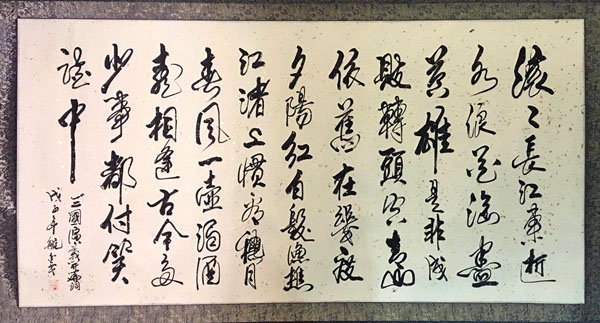 滚〻長江東逝
水浪花淘盡
英雄是非成
敗轉頭空青山
依舊在幾度
夕陽紅白髮漁樵
江渚上慣看穐月
春風一壺濁酒
喜相逢古今多
少事都付笑
談中
三國演義